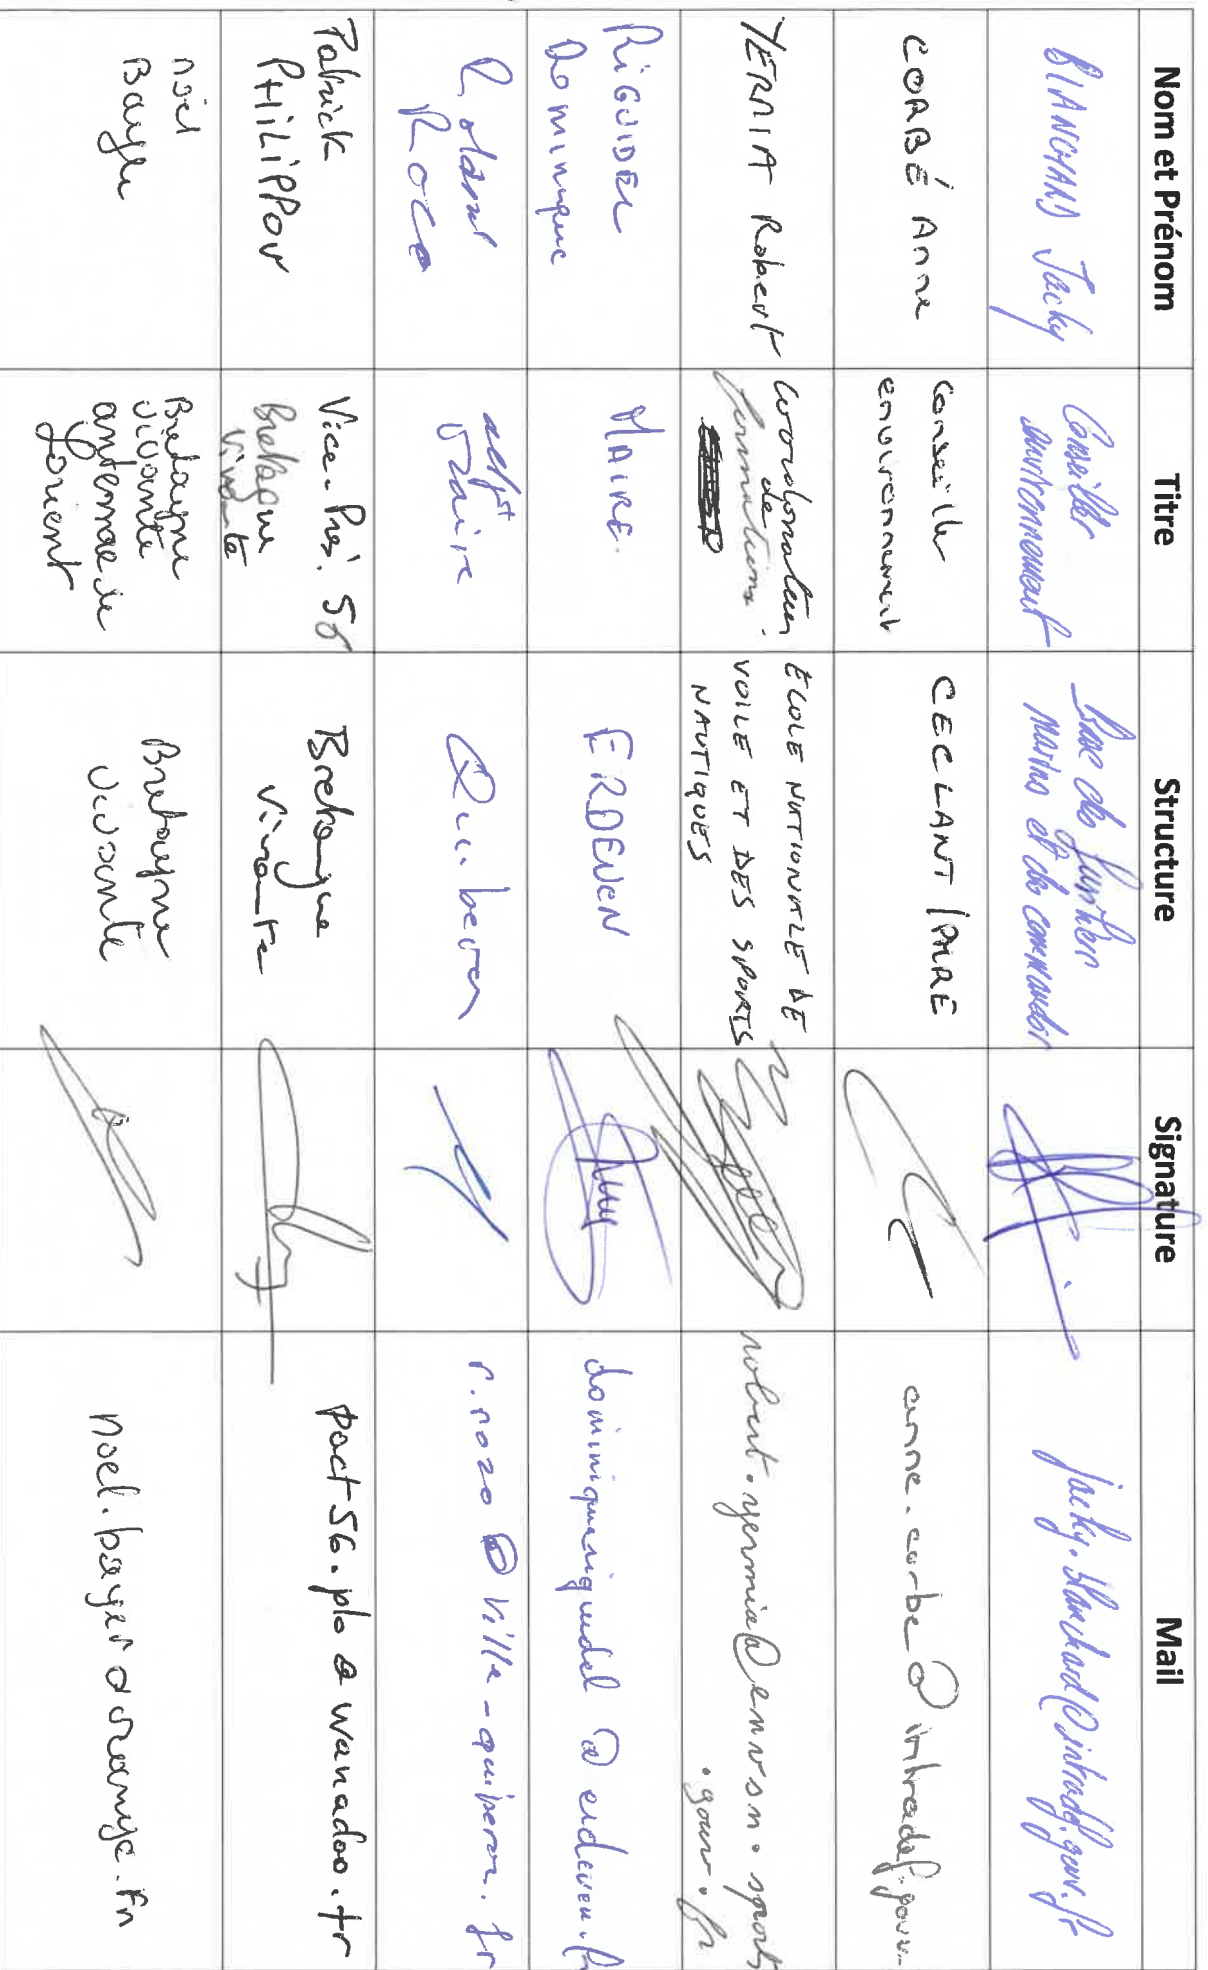 Nom et Prénom Titre Structure Signature Mail
BLANCHARD Jacky
Conseiller
environnement
Base des fusiliers
marins et des commandos
jacky.blanchard@intradef.gouv.fr
CORBÉ Anne
conseiller
environnement
CECLANT / PAIRE
anne.corbe@intradef.gouv.
YERMIA Robert
Coordonateur
de
formations
ECOLE NATIONALE DE
VOILE ET DES SPORTS
NAUTIQUES
robert.yermia@envsn.sports
.gouv.fr
RIGUIDEL
Dominique
MAIRE.
ERDEVEN
@erdeven.fr
Roland
adjt
Maire
Quiberon
r.rozo@ville-quiberon.fr
Patrick
PHILIPPON
Vice-Prés. 56
Bretagne
Vivante
Bretagne
Vivante
pact56.plo@wanadoo.fr
noël
Bayer
Bretagne
vivante
antenne de
Lorient
Bretagne
vivante
noel.bayer@orange.fr